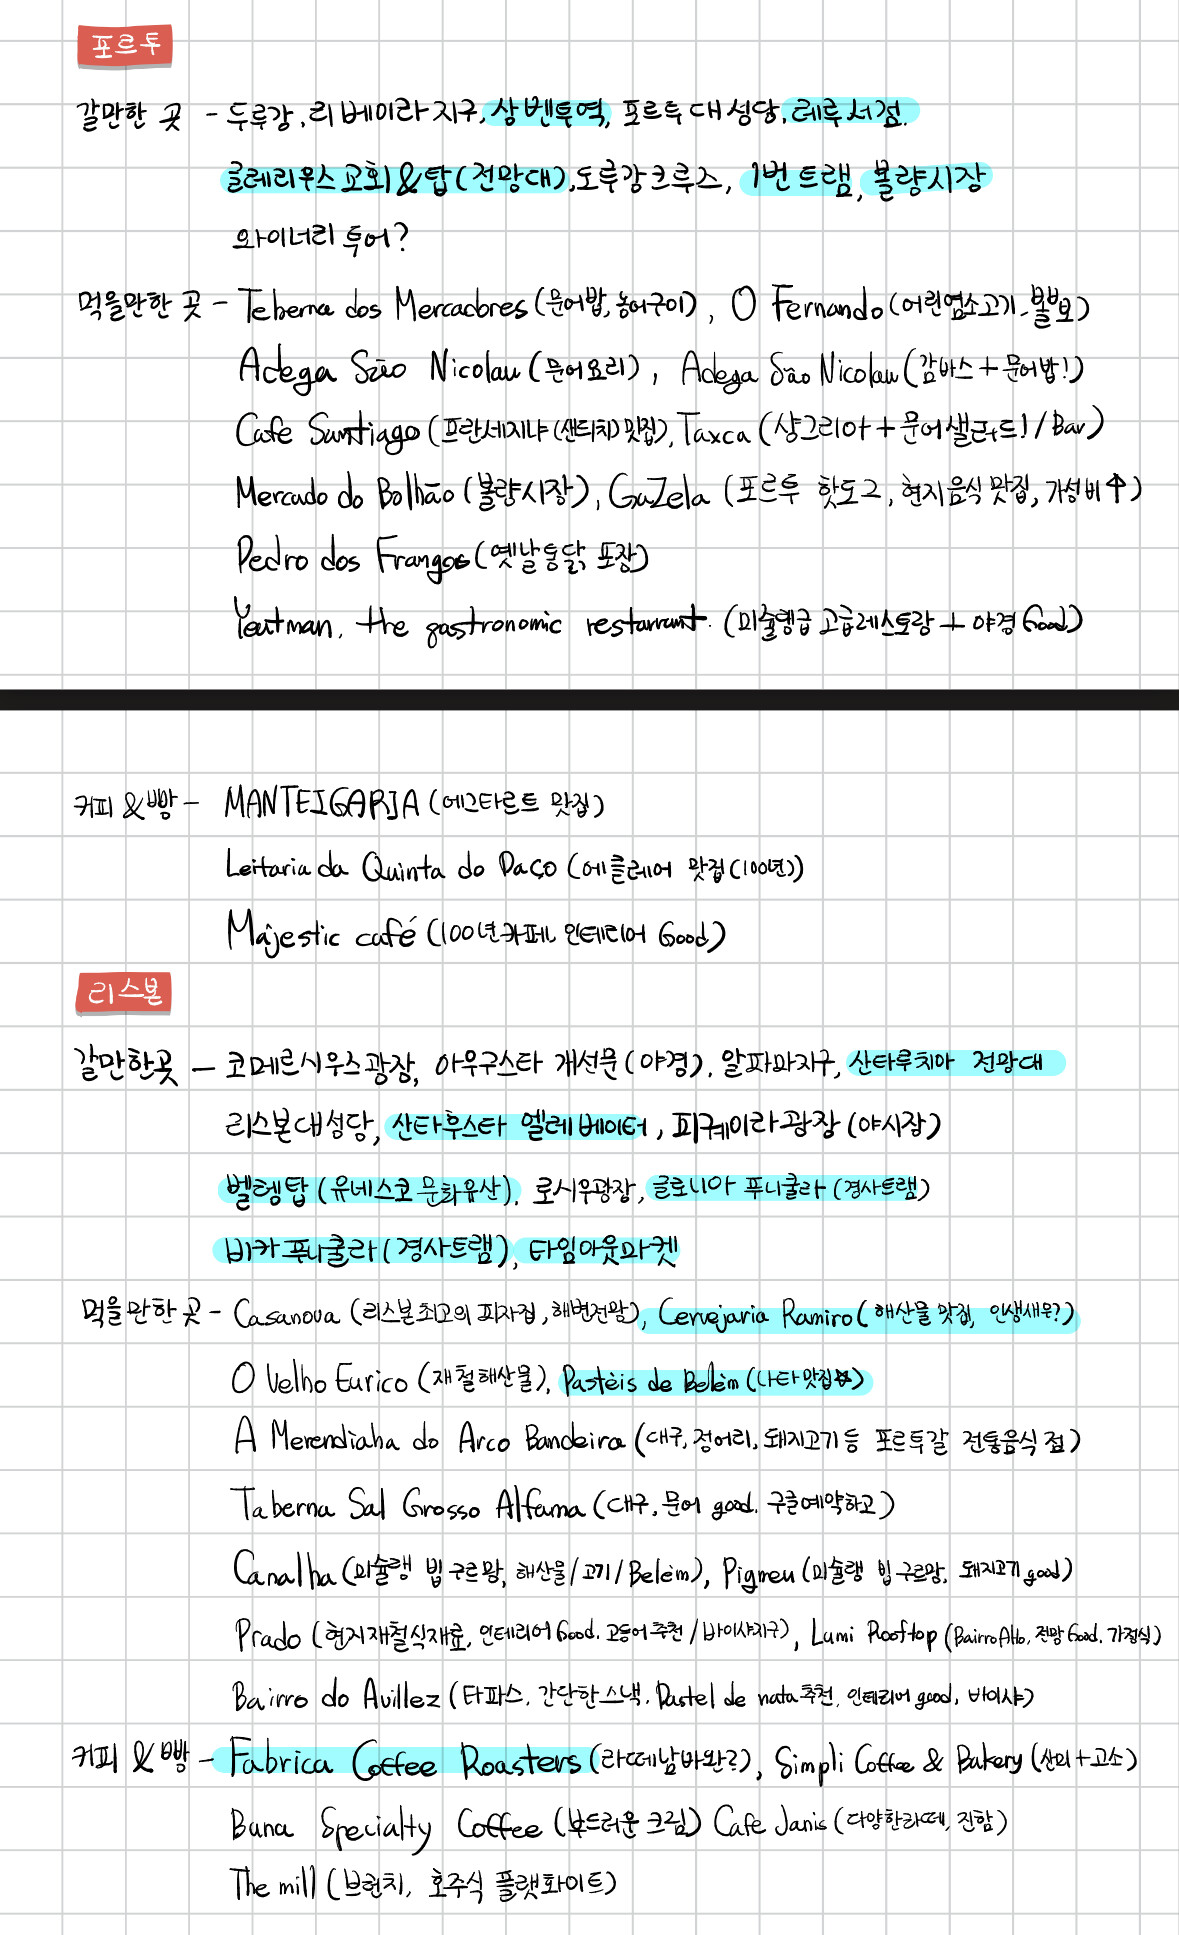 포르투
갈만한 곳 - 두루강, 리베이라지구, 상벤투역, 포르투대성당, 레루서점.
클레리우스교회&탑(전망대), 도루강크루즈, 1번트램, 볼량시장
와이너리 투어?
먹을만한 곳 - Teberna dos Mercadores (문어밥, 농어구이), O Fernando (어린염소고기, 뽈뽀)
Adega São Nicolau (문어요리), Adega São Nicolau (감바스+문어밥!)
Cafe Santiago (프란세지냐(샌드위치) 맛집), Taxca (샹그리아+문어샐러드!/Bar)
Mercado do Bolhão (볼량시장), GaZela (포르투 핫도그, 현지음식 맛집, 가성비↑)
Pedro dos Frangos (옛날통닭 포장)
Yeatman, the gastronomic restaurant. (미슐랭급 고급레스토랑+야경 Good)
커피&빵 - MANTEIGARIA (에그타르트 맛집)
Leitaria da Quinta do Paço (에클레어 맛집(100년))
Majestic café (100년카페, 인테리어 Good)
리스본
갈만한곳 - 코메르시우스광장, 아우구스타 개선문(야경), 알파마지구, 산타루치아 전망대
리스본대성당, 산타후스타 엘레베이터, 피게이라광장(야시장)
벨렝탑(유네스코 문화유산), 로시우광장, 글로리아 푸니쿨라(경사트램)
비카 푸니쿨라(경사트램), 타임아웃마켓
먹을만한 곳 - Casanova (리스본최고의 피자집, 해변전망), Cervejaria Ramiro (해산물 맛집, 인생새우?)
O Velho Eurico (제철해산물), Pastéis de Belém (나타맛집)
A Merendinha do Arco Bandeira (대구, 정어리, 돼지고기 등 포르투갈 전통음식점)
Taberna Sal Grosso Alfama (대구, 문어 good. 구글예약하고)
Canalha (미슐랭 빕구르망, 해산물/고기/Belém), Pigmeu (미슐랭 빕구르망, 돼지고기 good)
Prado (현지제철식재료, 인테리어 Good. 고등어추천/바이샤지구), Lumi Rooftop (Bairro Alto, 전망 Good. 가정식)
Bairro do Avillez (타파스, 간단한스낵, Pastel de nata추천, 인테리어 good, 바이샤)
커피&빵 - Fabrica Coffee Roasters (라떼남바완?), Simpli Coffee & Bakery (산미+고소)
Buna Specialty Coffee (부드러운 크림) Cafe Janis (다양한라떼, 진함)
The mill (브런치, 호주식 플랫화이트)